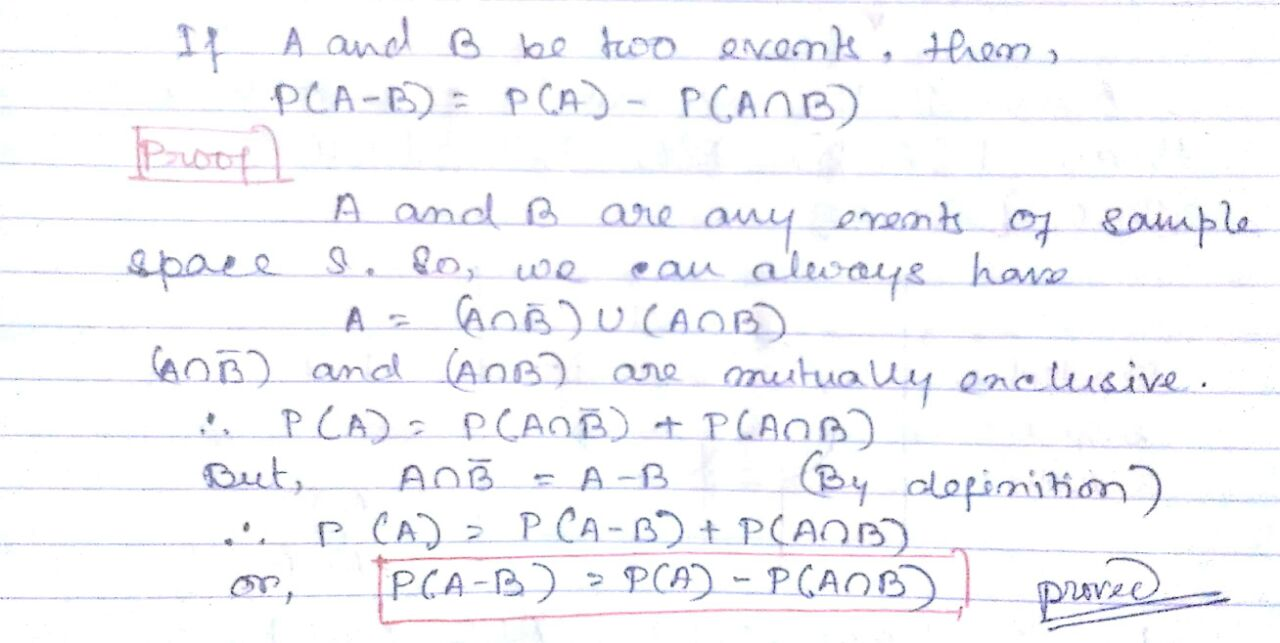 If A and B be two events, then,
P(A-B) = P(A) - P(A∩B)
Proof
A and B are any events of sample
space S. So, we can always have
A = (A∩B̄) ∪ (A∩B)
(A∩B̄) and (A∩B) are mutually exclusive.
∴ P(A) = P(A∩B̄) + P(A∩B)
But, A∩B̄ = A-B (By definition)
∴ P(A) = P(A-B) + P(A∩B)
or, P(A-B) = P(A) - P(A∩B) proved